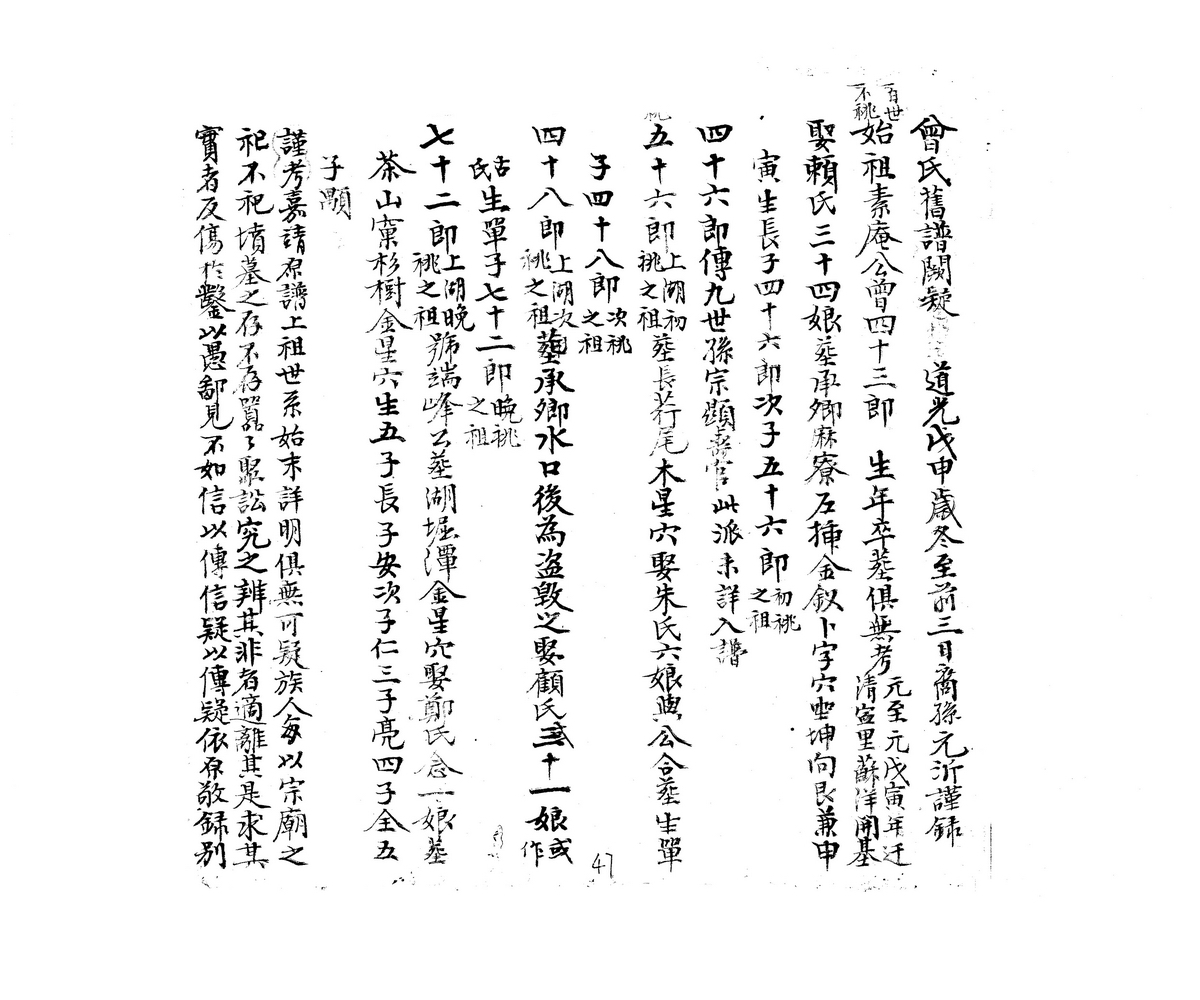 曾氏舊譜闕疑 道光戊申歲冬至前三日裔孫元沂謹録
百世不祧
始祖素庵公曾四十三郎 生年卒塟俱無考 元至元戊寅年迁清寧里蘇洋開基
娶賴氏三十四娘塟承卿麻寮左揷金釵卜字穴坐坤向艮兼申
寅生長子四十六郎次子五十六郎 初祧之祖
四十六郎傳九世孫宗顕壽官此派未詳入譜
五十六郎 上湖初祧之祖 塟長荇尾木星穴娶朱氏六娘與公合塟生單
子四十八郎 次祧之祖
四十八郎 上湖次祧之祖 塟承卿水口後為盗毀之娶顧氏三十一娘或作
古氏生單子七十二郎 晚祧之祖
七十二郎 上湖晚祧之祖 號端峰公塟湖堀潭金星穴娶鄭氏念一娘塟
茶山窠杉樹金星穴生五子長子安次子仁三子亮四子全五
子顯
謹考嘉靖原譜上祖世系始末詳明俱無可疑族人每以宗廟之
祀不祀墳墓之存不存囂々聚訟究之辨其非者適離其是求其
實者反傷於鑿以愚鄙見不如信以傳信疑以傳疑依原敬録别
47